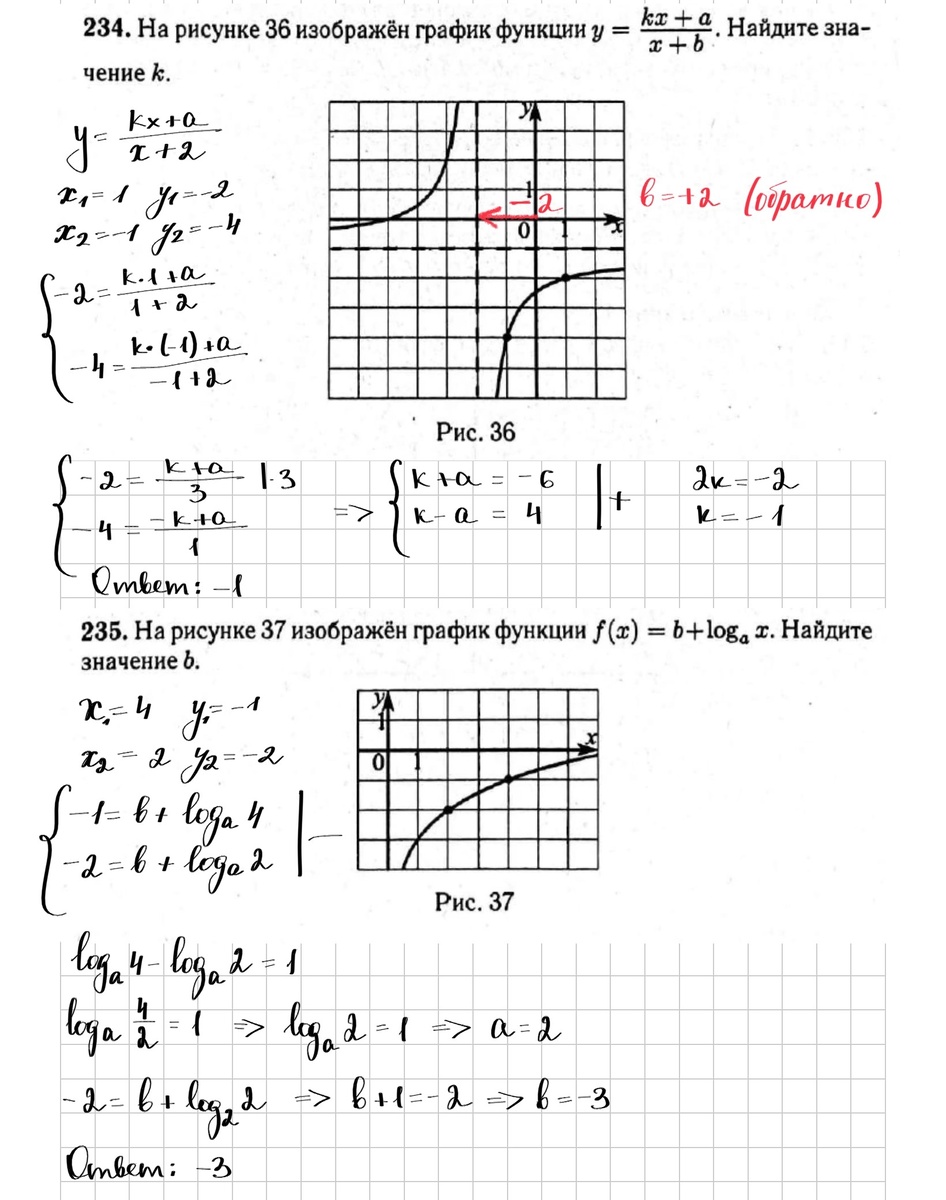 234. На рисунке 36 изображён график функции y = (kx + a)/(x + b). Найдите зна-
чение k.
y = (kx+a)/(x+2)
x₁=1 y₁=-2
x₂=-1 y₂=-4
-2 = (k·1+a)/(1+2)
-4 = (k·(-1)+a)/(-1+2)
y
1
-2
0
1
x
b=+2 (обратно)
Рис. 36
{-2 = (k+a)/3 |·3 => {k+a = -6 |+ 2k=-2
-4 = (-k+a)/1 k-a = 4 k=-1
Ответ: -1
235. На рисунке 37 изображён график функции f(x) = b+logₐ x. Найдите
значение b.
x₁=4 y₁=-1
x₂=2 y₂=-2
{-1=b+logₐ4 | -
-2=b+logₐ2
y
1
0
1
x
Рис. 37
logₐ4-logₐ2=1
logₐ 4/2 =1 => logₐ2=1 => a=2
-2=b+log₂2 => b+1=-2 => b=-3
Ответ: -3